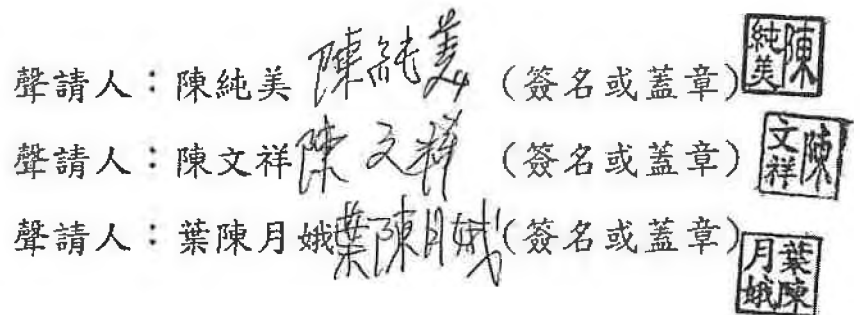 聲請人：陳純美 陳純美 (簽名或蓋章) 陳純美
聲請人：陳文祥 陳文祥 (簽名或蓋章) 陳文祥
聲請人：葉陳月娥 葉陳月娥 (簽名或蓋章) 葉陳月娥